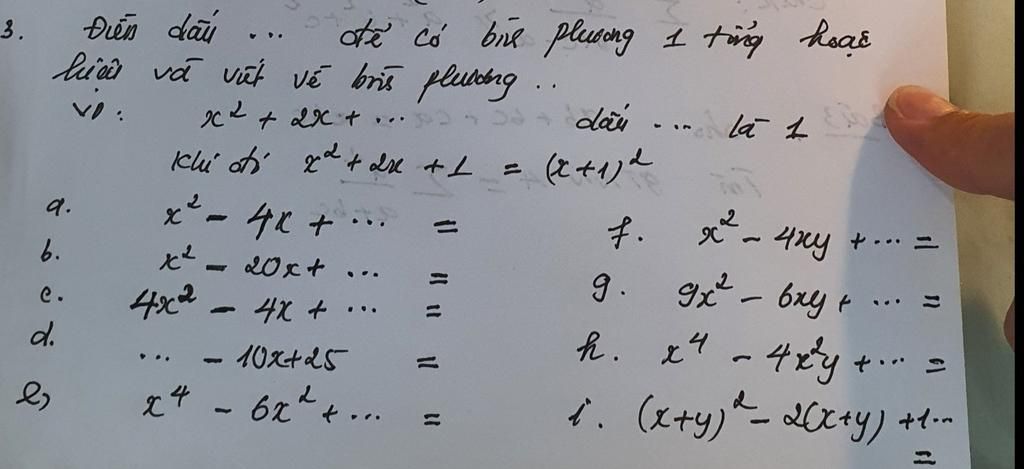 3. Điền dấu ... để có bình phương 1 tổng hoặc
hiệu và viết về bình phương ..
VD: x² + 2x + ... dấu ... là 1
Khi đó x² + 2x + 1 = (x+1)²
a. x² - 4x + ... =
b. x² - 20x + ... =
c. 4x² - 4x + ... =
d. ... - 10x+25 =
e, x⁴ - 6x² + ... =
f. x² - 4xy + ... =
g. 9x² - 6xy + ... =
h. x⁴ - 4x²y + ... =
i. (x+y)² - 2(x+y) + 1 ...
=